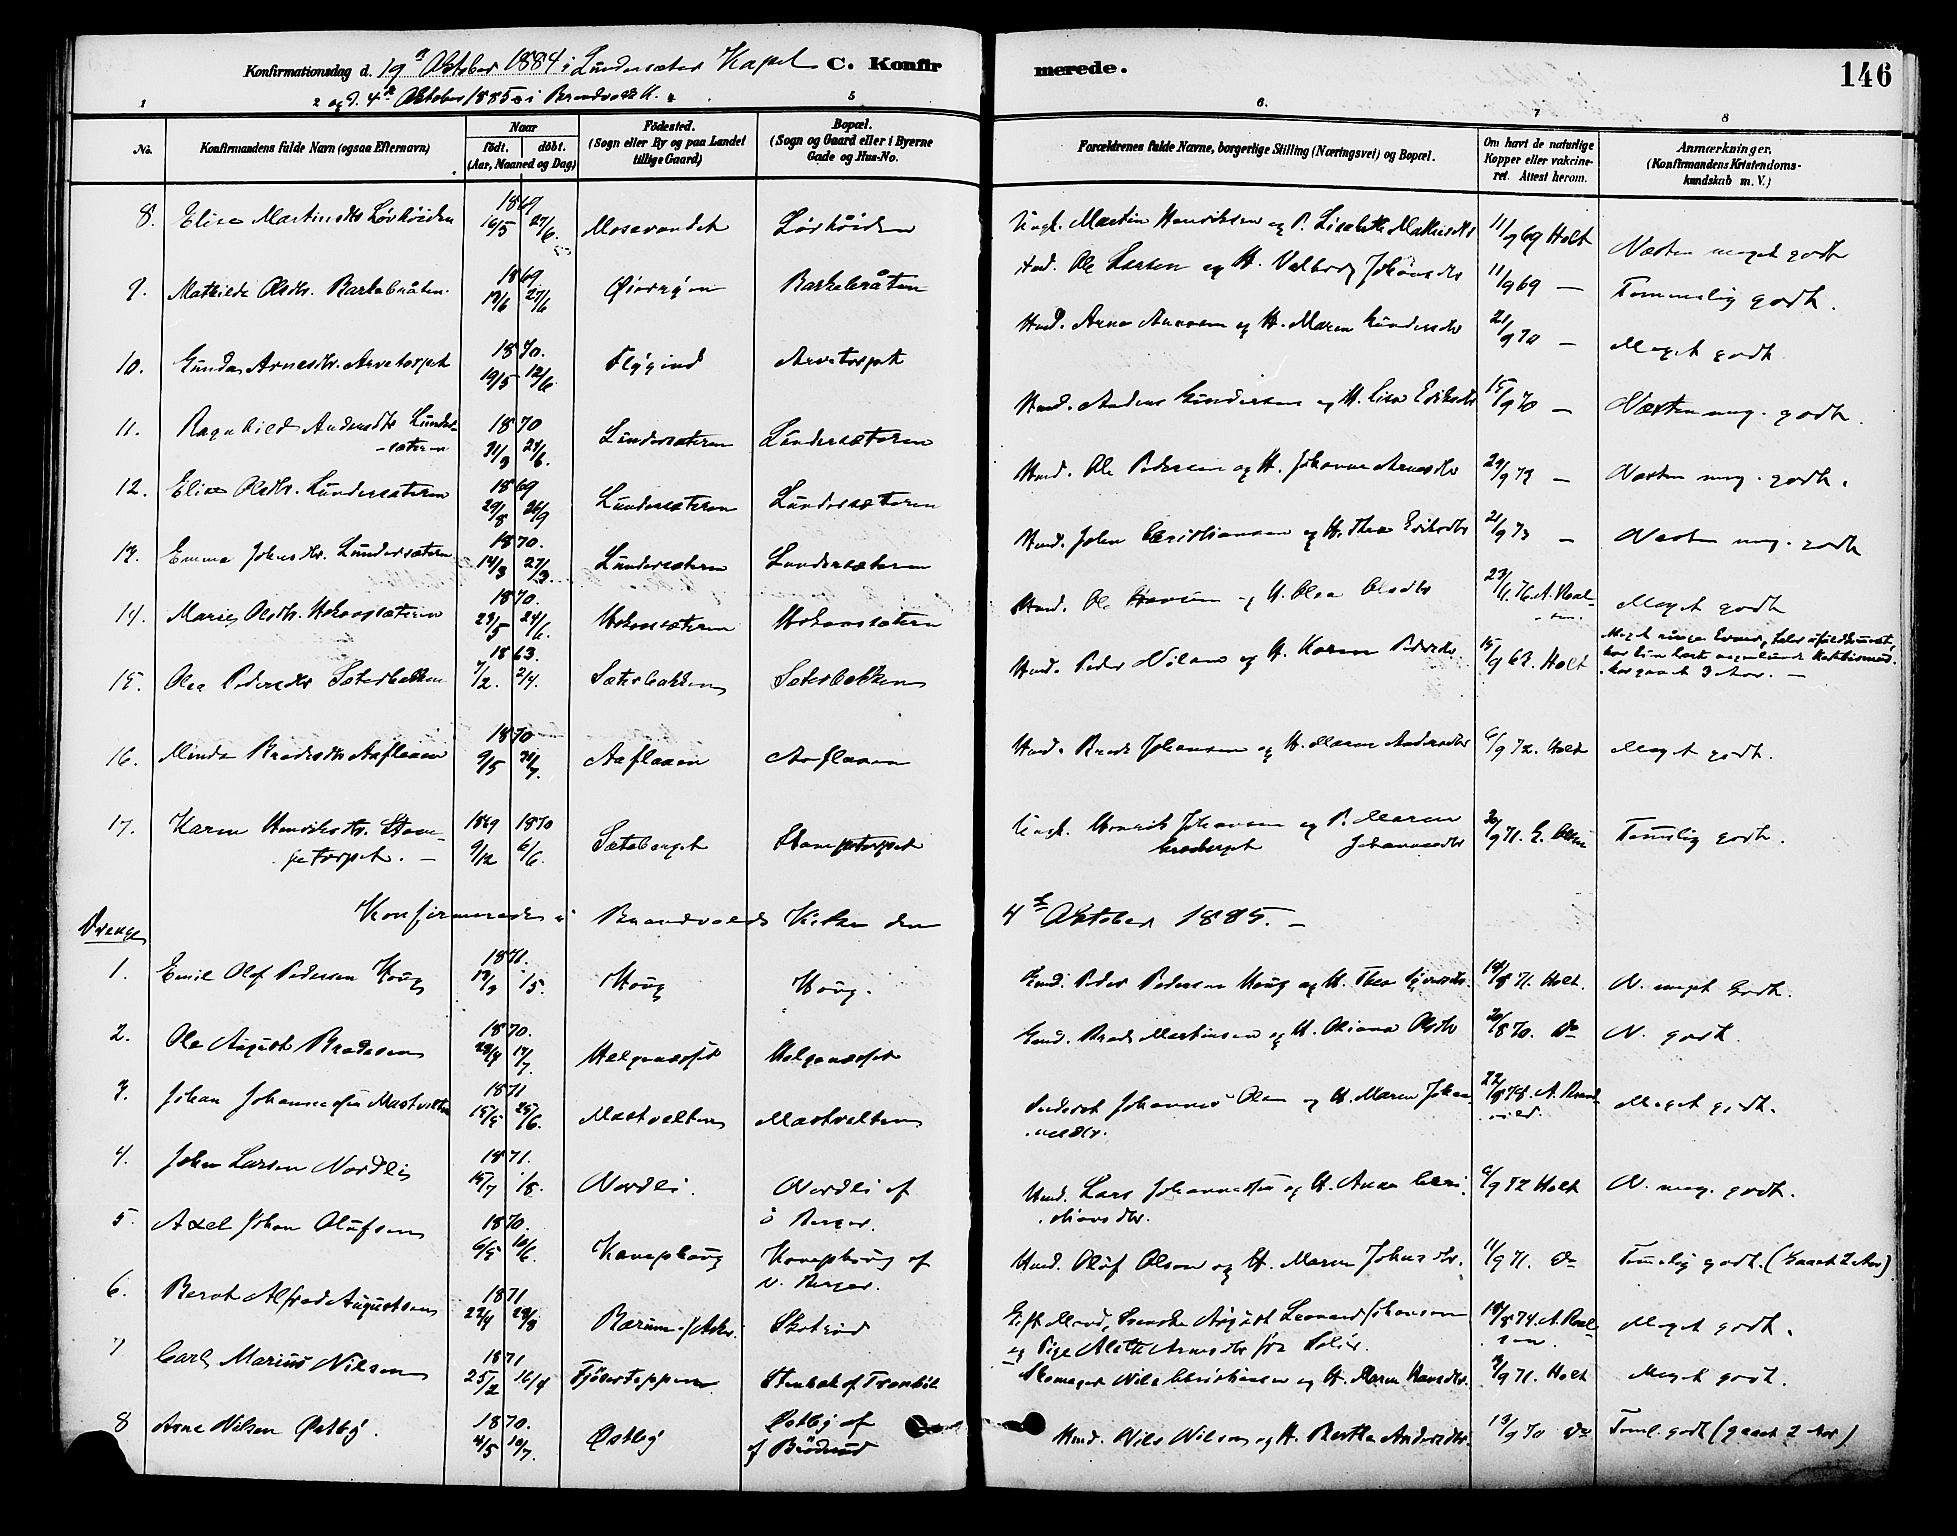 Konfirmationsdag d. 19de Oktober 1884 i Lundersæter Kapel C. Konfirmerede. 146
og d. 4de Oktober 1885 i Brandvold K.
1 2 5 6. 7 8
No. Konfirmandens fulde Navn (ogsaa Efternavn) Naar født. døbt. (Aar, Maaned og Dag) Fødested. (Sogn eller By og paa Landet tillige Gaard) Bopæl. (Sogn og Gaard eller i Byerne Gade og Hus-No. Forældrenes fulde Navne, borgerlige Stilling (Næringsvei) og Bopæl. Om havt de naturlige Kopper eller vakcineret. Attest herom. Anmærkninger. (Konfirmandens Kristendomskundskab m. V.)
8. Elise Martinsdtr. Løvhöiden 1869 16/5 27/6. Mosevandet Løvhöiden Ungk. Martin Henriksen og P. Lisabeth 11/9 69 Holt Næsten meget godt
9. Mathilde Olsdtr. Barkebråten 1869 13/6 27/6 Øieren Barkebråten Hmd. Ole Larsen og H. Valborg Johansdtr 11/9 69 — Temmelig godt.
10. Gunda Arnesdtr. Arvetorpet 1870. 19/5 12/6. Flÿgind Arvetorpet Hmd. Arne Arnesen og H. Maren Gundersdtr 21/9 70 — Meget godt
11. Ragnhild Andersdtr Lunder-
-sæteren 1870 31/3 24/6. Lundersæteren Lundersæteren Hmd. Anders Gundersen og H. Lisa Eriksdtr 15/9 70 — Næsten meg. godt.
12. Elise Olsdtr. Lundersæteren 1869 29/8 26/9 Lundersæteren Lundersæteren Hmd. Ole Pedersen og H. Johanne Arnesdtr 24/9 73 — Næsten meg. godt.
13. Emma Johnsdtr. Lundersæteren 1870. 14/3 27/3. Lundersæteren Lundersæteren Hmd. John Christiansen og H. Thea Eriksdtr 21/9 73 — Næsten meg. godt
14. Marie Olsdtr. Hokaasæteren 1870. 29/5 24/6. Hokaasæteren Hokaasæteren Hmd. Ole Hansen og H. Olea Olsdtr 23/6 76. Meget godt
15. Olea Pedersdtr Sæterbakken 1863. 7/2. 2/4. Sæterbakken Sæterbakken Hmd. Peder Nilsen og H. Karen Pedersdtr 15/9 63. Holt Meget ringe Evner,
har kun lært
har gaaet 3 Aar. —
16. Minda Bredesdtr Aaflaaen 1870 9/5 31/7. Aaflaaen Aaflaaen Hmd. Brede Johansen og H. Maren Andersdtr 6/9 72. Holt Meget godt.
17. Karen Henriksdtr. Stompe-
torpet. — 1869 9/12 1870 6/6. Sæteberget Stompetorpet Ungk. Henrik Johansen og P. Maren
Johannesdtr 20/9 71. Temelig godt.
Drenge Konfirmerede i Brandvolds Kirke den 4de Oktober 1885. —
1. Emil Olof Pedersen Houg 1871. 19/3 1/5. Houg Houg. Gmd. Peder Pedersen Houg og H. Thea 18/8 71. Holt. N. meget Godt.
2. Ole August Bredesen 1870. 28/4 17/7. Helgenæsset Helgenæsset Gmd. Brede Martinsen og H. Oliana Olsdtr 20/8 70. Do N. godt.
3. Johan Johannessen Mastvelten 1871 15/5 25/6. Mastvelten Mastvelten Inderst Johannes Olsen og H. Maren Johan-
nesdtr. 22/8 78. A. Meget godt.
4. John Larsen Nordli 1871. 15/7 1/8. Nordli. Nordli af
ö Berger. Hmd. Lars Johannessen og H. Anna Chri-
stiansdtr. 6/9 72 Holt N. meg. godt.
5. Axel Johan Olüfsen 1870. 6/5 10/6. Kampehoug Kampehoug af
n. Berger. Hmd. Olüf Olsen og H. Maren Johnsdtr. 11/9 71. Do Temelig godt. (Gaaet 2 Aar)
6. Bernt Alfred Augustsen 1871 22/4 29/8 Bærum i/ Asker. Skotrud Gift Mand, Svenske August Leonard Johansen
og Pige Aleth Arnesdtr fra Solör. 18/8 74. A. Meget godt.
7 Carl Marius Nilsen 1871 25/2 16/4 Fjösertoppen Stenbak af Trønbøl Skomager Nils Christiansen og H. Maren Hansdtr. 9/9 71. Holt Meget godt.
8 Arne Nilsen Østbÿ. 1870. 4/5 10/7. Østbÿ Østbÿ af
af Brödrud Hmd. Nils Nilsen og H. Berthe Andersdtr. 13/9 70 Do Teml. godt (gaaet 2 Aar)